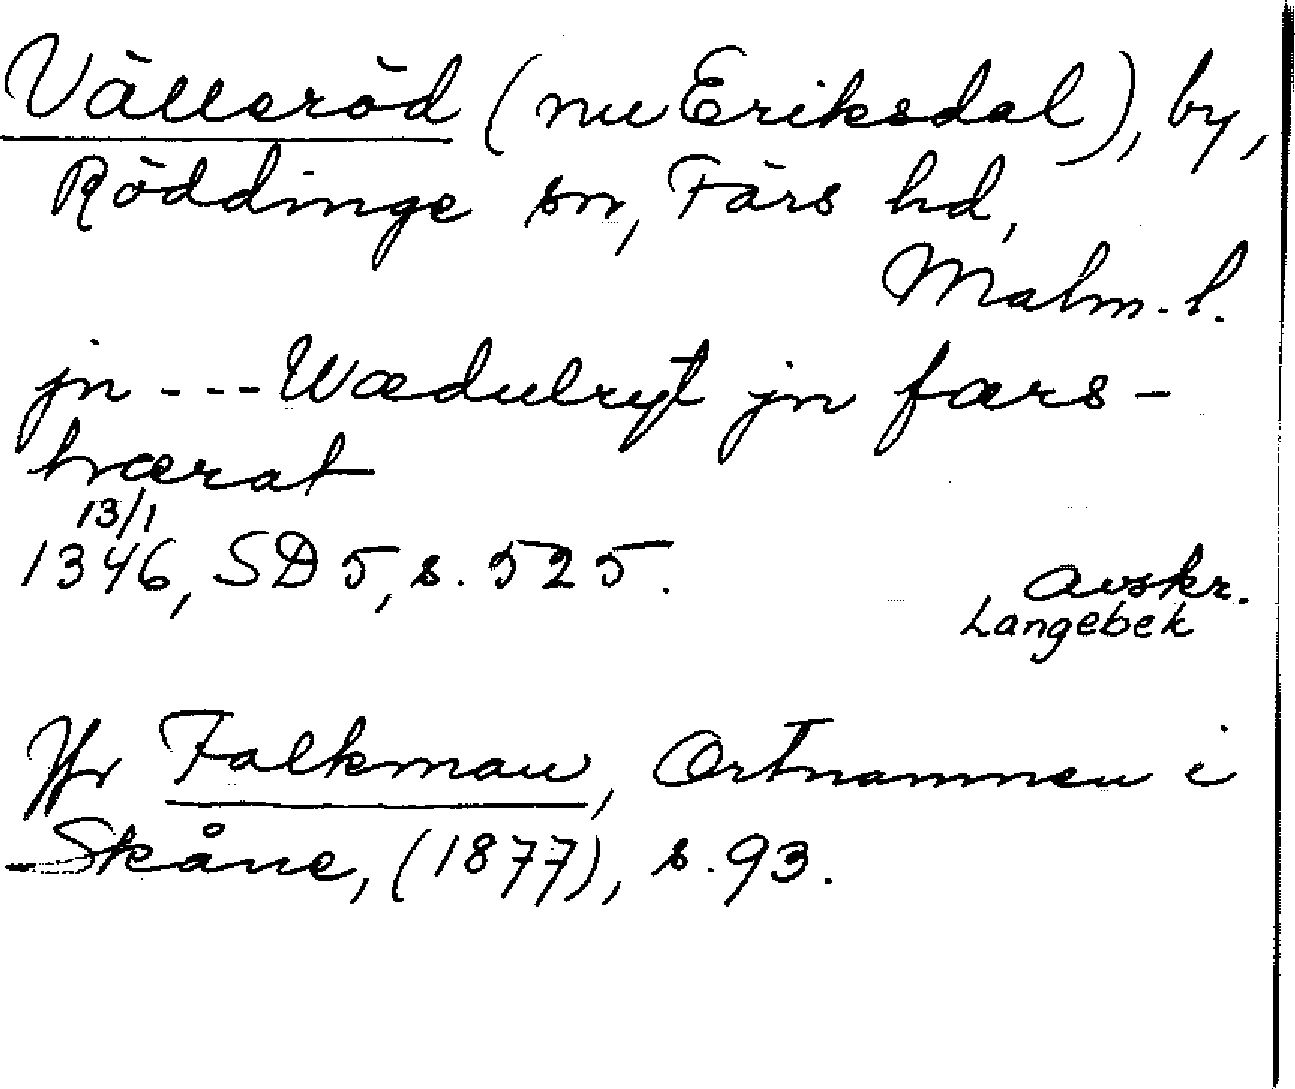 Välleröd (nu Eriksdal), by,
Röddinge sn, Färs hd,
Malm. l.
jn --- Wædulryt jn færs-
hværat
13/1
1346, SD 5, s. 525.
avskr.
Langebek
Jfr Falkman, Ortnamnen i
Skåne, (1877), s. 93.